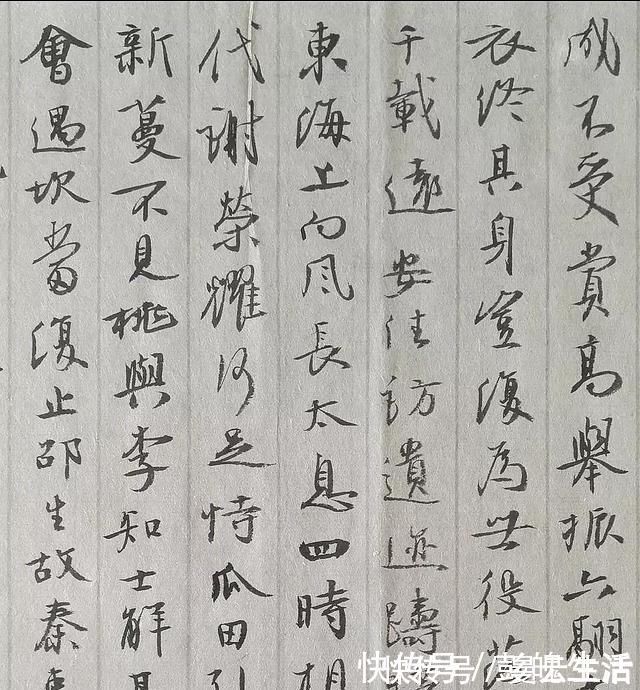 成不受賞高舉振六翮
衣終其身豈復為世役
千載遠安往訪遺迹躊
東海上向風長太息四時相
代謝榮耀何足恃瓜田引
新蔓不見桃與李知士解其
會遇坎當復止邵生故秦東